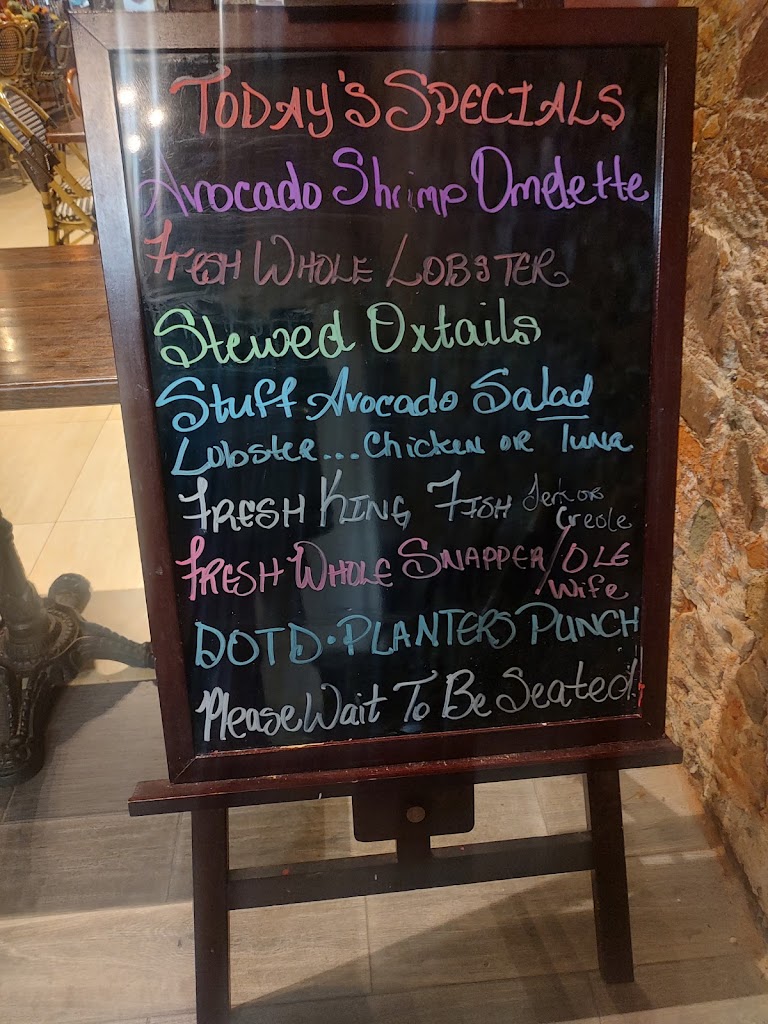 TODAY'S SPECIALS
Avocado Shrimp Omelette
Fresh WHOLE LOBSTER
Stewed Oxtails
Stuff Avocado Salad
Lobster...Chicken or Tuna
FRESH KING FISH Jerk or
Creole
FRESH WHOLE SNAPPER/OLE
Wife
DOTD·PLANTERS PUNCH
Please Wait To Be Seated!